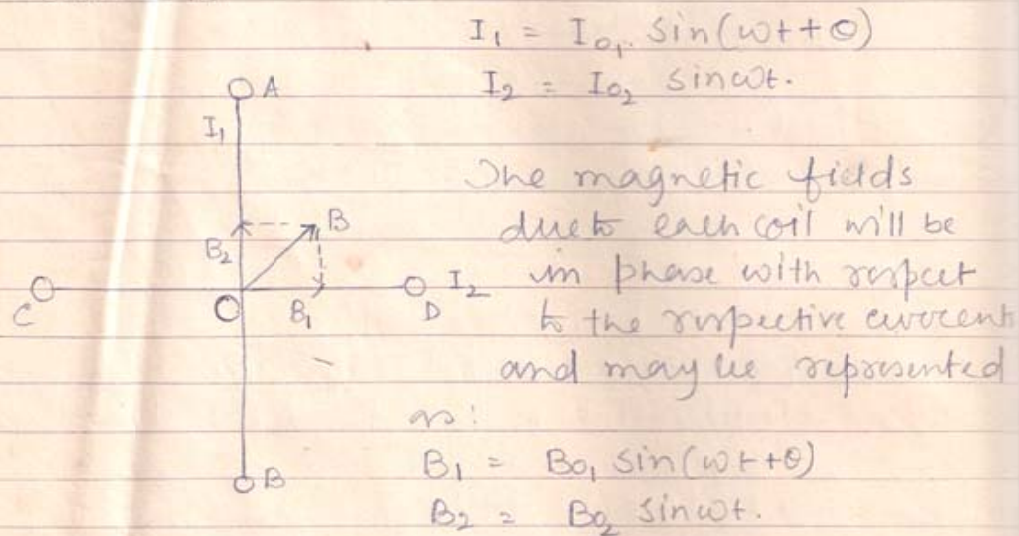 I₁ = I₀₁ sin(ωt+θ)
I₂ = I₀₂ sinωt.
A
I₁
The magnetic fields
due to each coil will be
B
B₂
in phase with respect
I₂
C
O
B₁
D
to the respective current
and may be represented
as:
B₁ = B₀₁ sin(ωt+θ)
B
B₂ = B₀₂ sinωt.